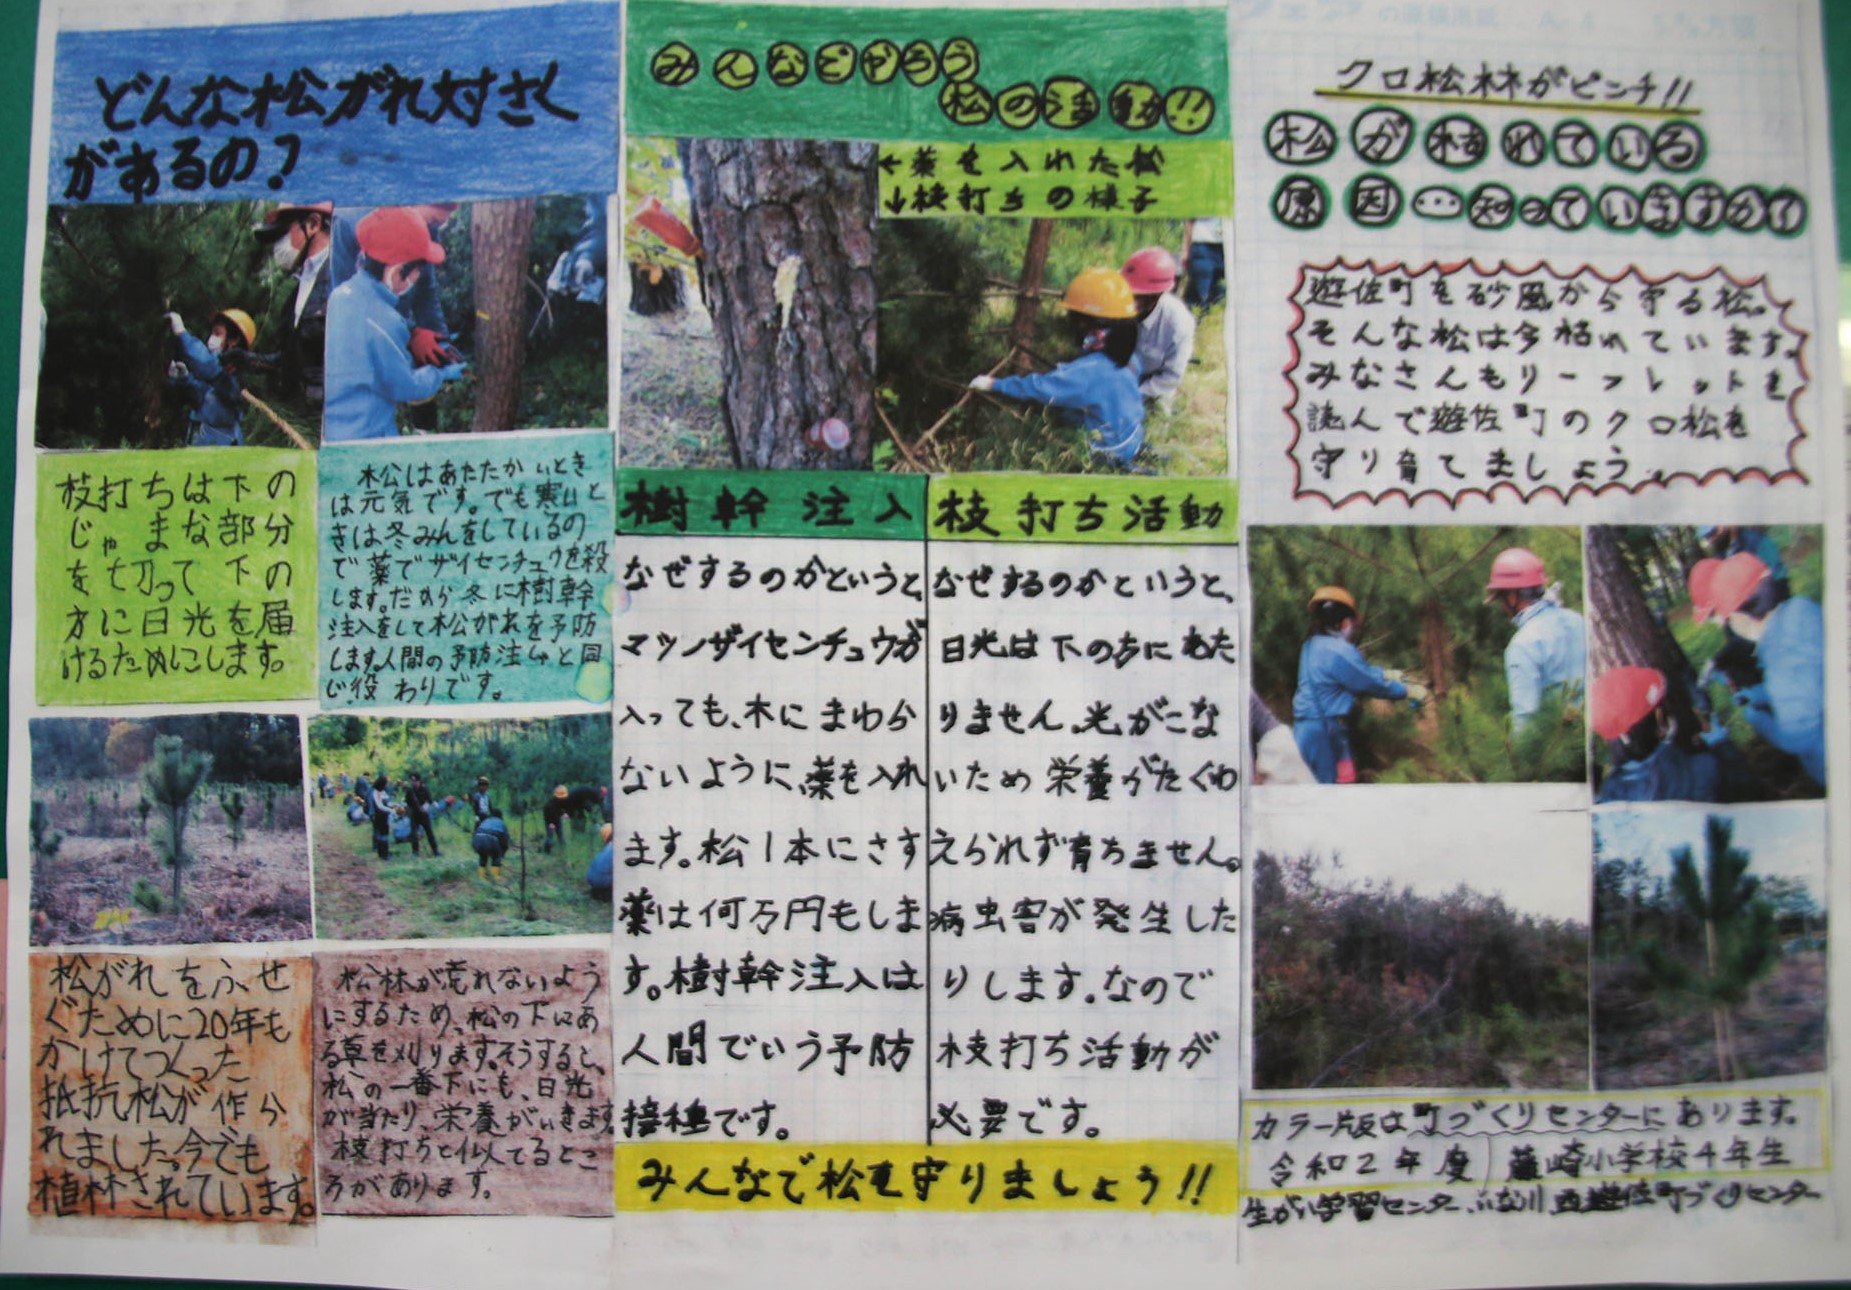 どんな松がれ対さく
があるの?
枝打ちは下の
じゃまな部分
を切って下の
方に日光を届
けるためにします。
松はあたたかいとき
は元気です。でも寒いと
きは冬みんをしているの
で薬でザイセンチュウを殺
します。だから冬に樹幹
注入をして松がれを予防
します。人間の予防注しゃと同
じ役わりです。
松がれをふせ
ぐために20年も
かけてつくった
抵抗松が作ら
れました。今でも
植林されています。
松林が荒れないよう
にするため、松の下にあ
る草を刈ります。そうすると、
松の一番下にも、日光
が当たり、栄養がいきます。
枝打ちと似てるとこ
ろがあります。
みんなでやろう
松の活動!!
←薬を入れた松
↓枝打ちの様子
樹幹注入
なぜするのかというと、
マツノザイセンチュウが
入っても、木にまわら
ないように、薬を入れ
ます。松1本にさす
薬は何万円もしま
す。樹幹注入は
人間でいう予防
接種です。
枝打ち活動
なぜするのかというと、
日光は下の方にあた
りません。光がこな
いため栄養がたくわ
えられず育ちません。
病虫害が発生した
りします。なので
枝打ち活動が
必要です。
みんなで松を守りましょう!!
クロ松林がピンチ!!
松が枯れている
原因…知っていますか?
遊佐町を砂風から守る松。
そんな松は今枯れています。
みなさんもリーフレットを
読んで遊佐町のクロ松を
守り育てましょう。
カラー版は町づくりセンターにあります。
令和2年度 藤崎小学校4年生
生がい学習センター、いな川、西遊佐町づくりセンター